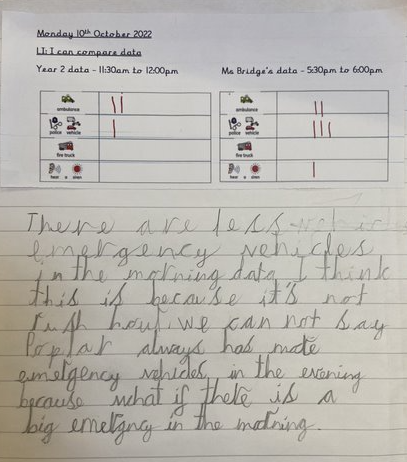 Monday 10th October 2022
LI: I can compare data
Year 2 data - 11:30am to 12:00pm    Ms Bridge's data - 5:30pm to 6:00pm
ambulance    ambulance
police vehicle    police vehicle
fire truck    fire truck
hear a siren    hear a siren
There are less
emergency vehicles
in the morning data. I think
this is because it's not
rush hour. we can not say
Poplar always has more
emergency vehicles in the evening
because what if there is a
big emergncy in the morning.